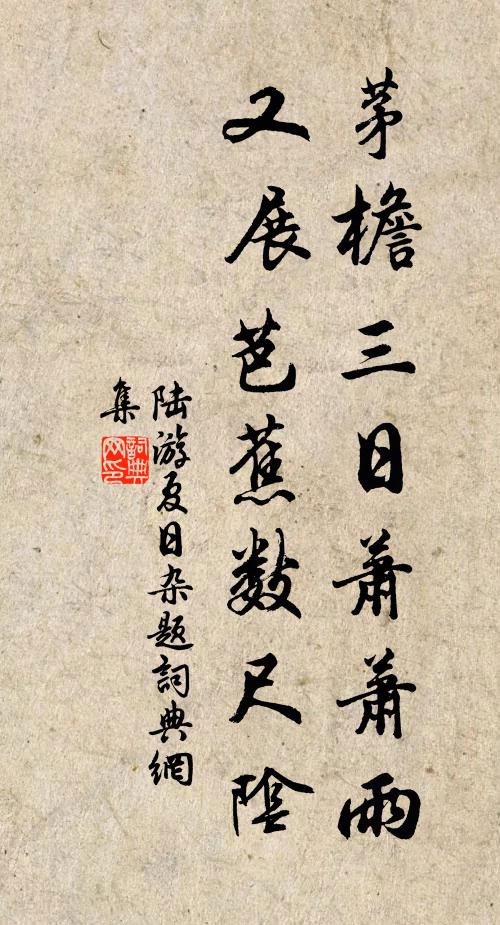 茅檐三日萧萧雨
又展芭蕉数尺陰
陆游夏日杂题詞典網
集
詞典
网印